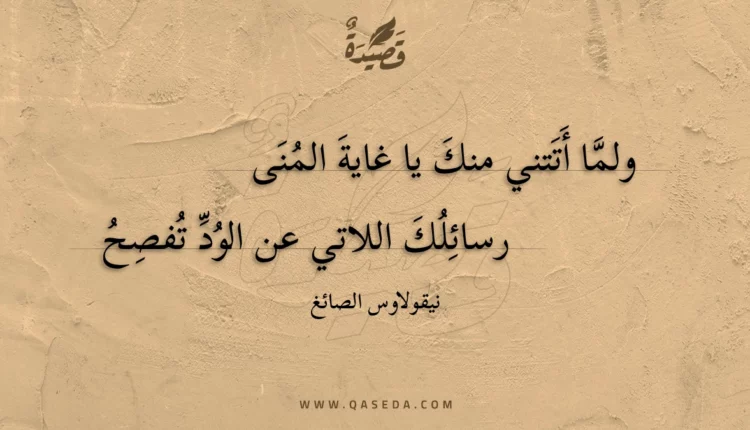 قَصِيدَةٌ
ولمَّا أَتَتني منكَ يا غايةَ المُنَى
رسائِلُكَ اللاتي عن الوُدِّ تُفصِحُ
نيقولاوس الصائغ
WWW.QASEDA.COM